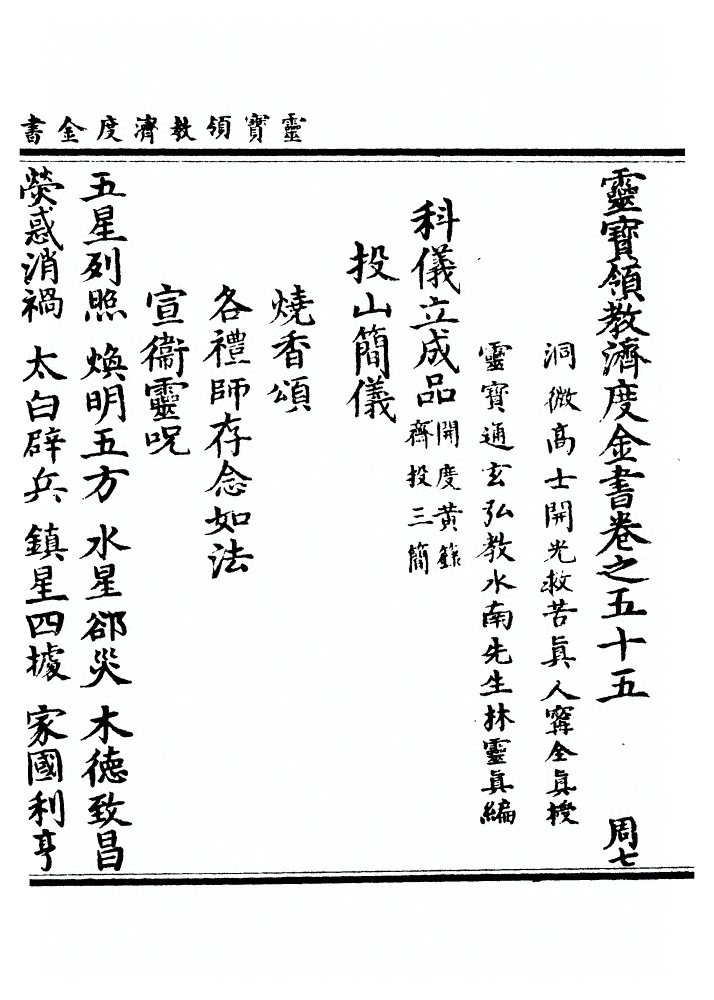 靈寶領教濟度金書
靈寶領教濟度金書卷之五十五 周七
洞微高士開光救苦眞人寗全眞授
靈寶通玄弘教水南先生林靈眞編
科儀立成品 開度黄籙齋投三簡
投山簡儀
燒香頌
各禮師存念如法
宣衞靈呪
五星列照 煥明五方 水星郤災 木德致昌
熒惑消禍 太白辟兵 鎮星四據 家國利亨